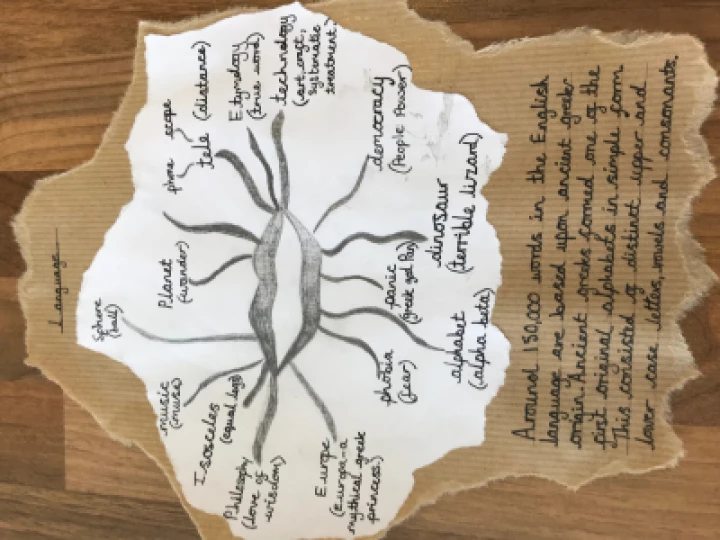 Language
Sphere
(ball)
music
(muse)
Planet
(wander)
phone scope
tele (distance)
Isosceles
(equal legs)
Etymology
(true word)
Philosophy
(love of
wisdom)
technology
(art, craft,
systematic
treatment.)
Europe
(Europa-a
mythical greek
princess.)
phobia
(fear)
panic
(greek god Pan)
democracy
(People Power)
alphabet
(alpha beta)
dinosaur
(terrible lizard)
Around 150,000 words in the English
language are based upon ancient greek
origin. Ancient greeks formed one of the
first original alphabets in simple form.
This consisted of distinct upper and
lower case letters, vowels and consonants.